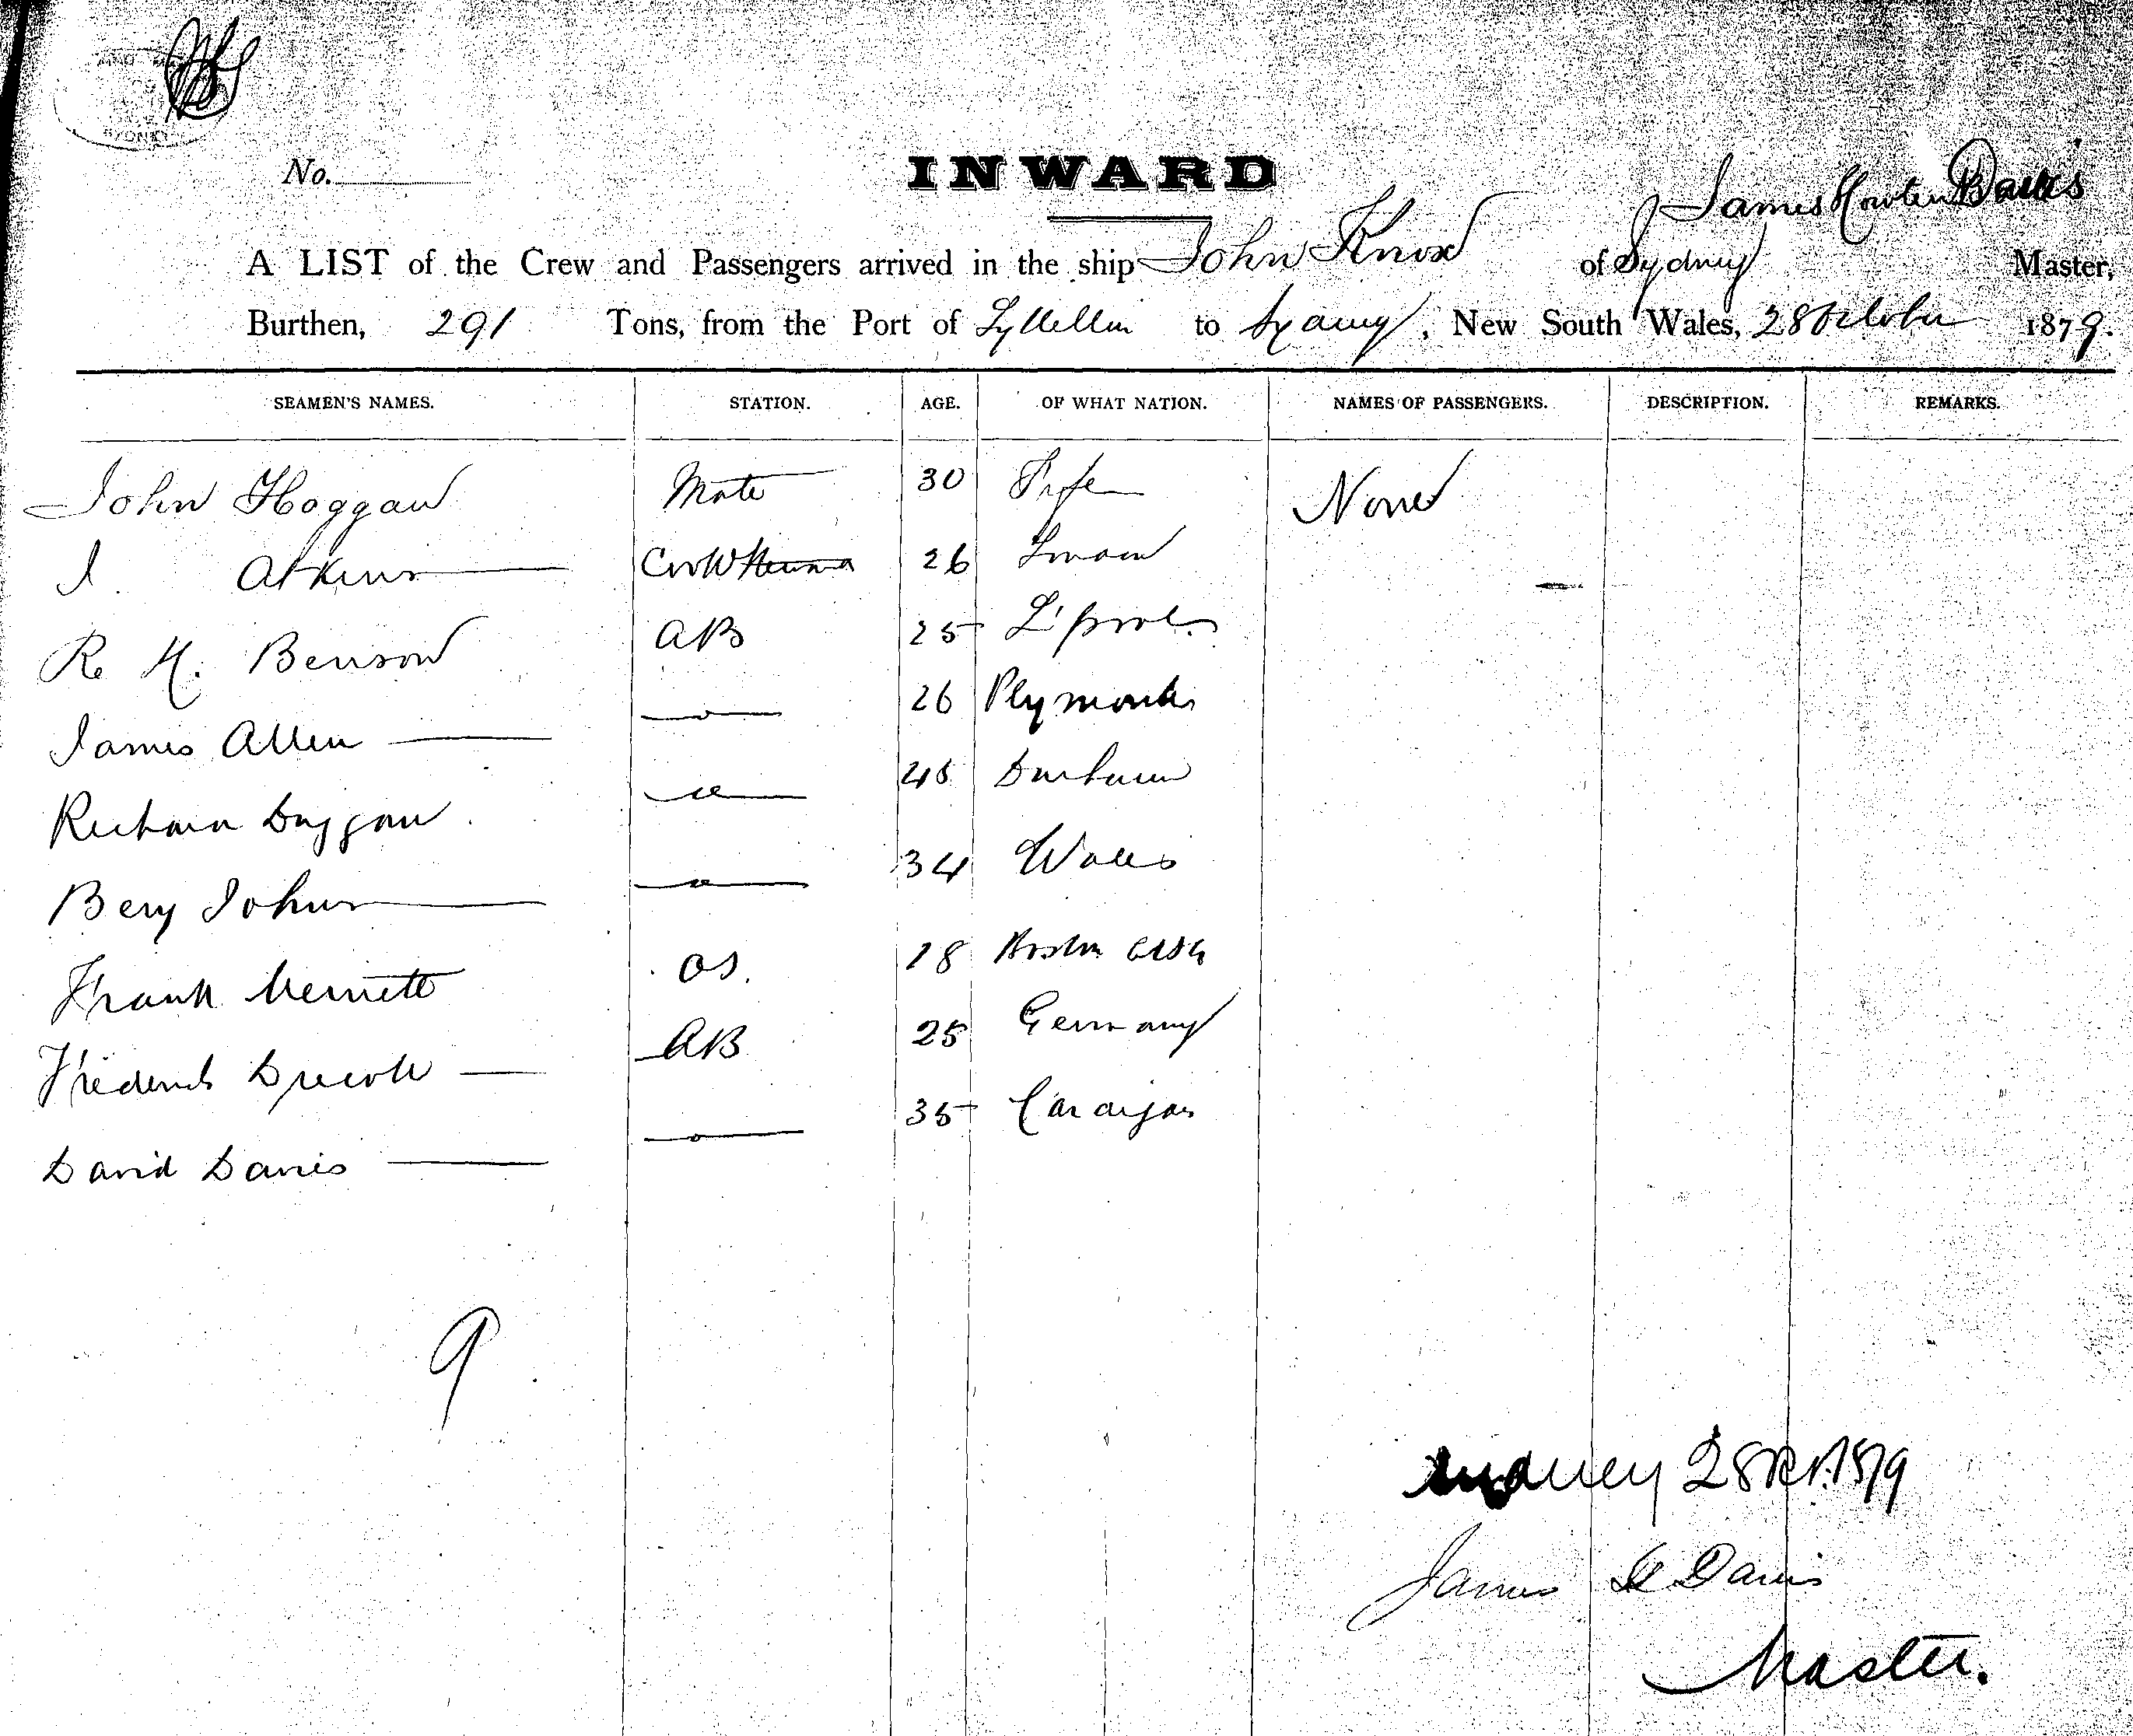 SYDNEY
No.
INWARD
James Howten Davis
A LIST of the Crew and Passengers arrived in the ship John Knox of Sydney Master,
Burthen, 291 Tons, from the Port of Lyttelton to Sydney, New South Wales, 28 October 1879.
SEAMEN'S NAMES. STATION. AGE. OF WHAT NATION. NAMES OF PASSENGERS. DESCRIPTION. REMARKS.
John Hoggan Mate 30 Fife None
J. Atkins 26
R. H. Benson AB 25 L'pool
James Allen 26 Plymouth
Richard Duggan 45 Durham
Benj Johns 34 Wales
Frank Merritt OS. 18 Boston USA
Frederick AB 25 Germany
David Davis 35 Cardigan
9
Sydney 28 Oct. 1879
James H Davis
Master.